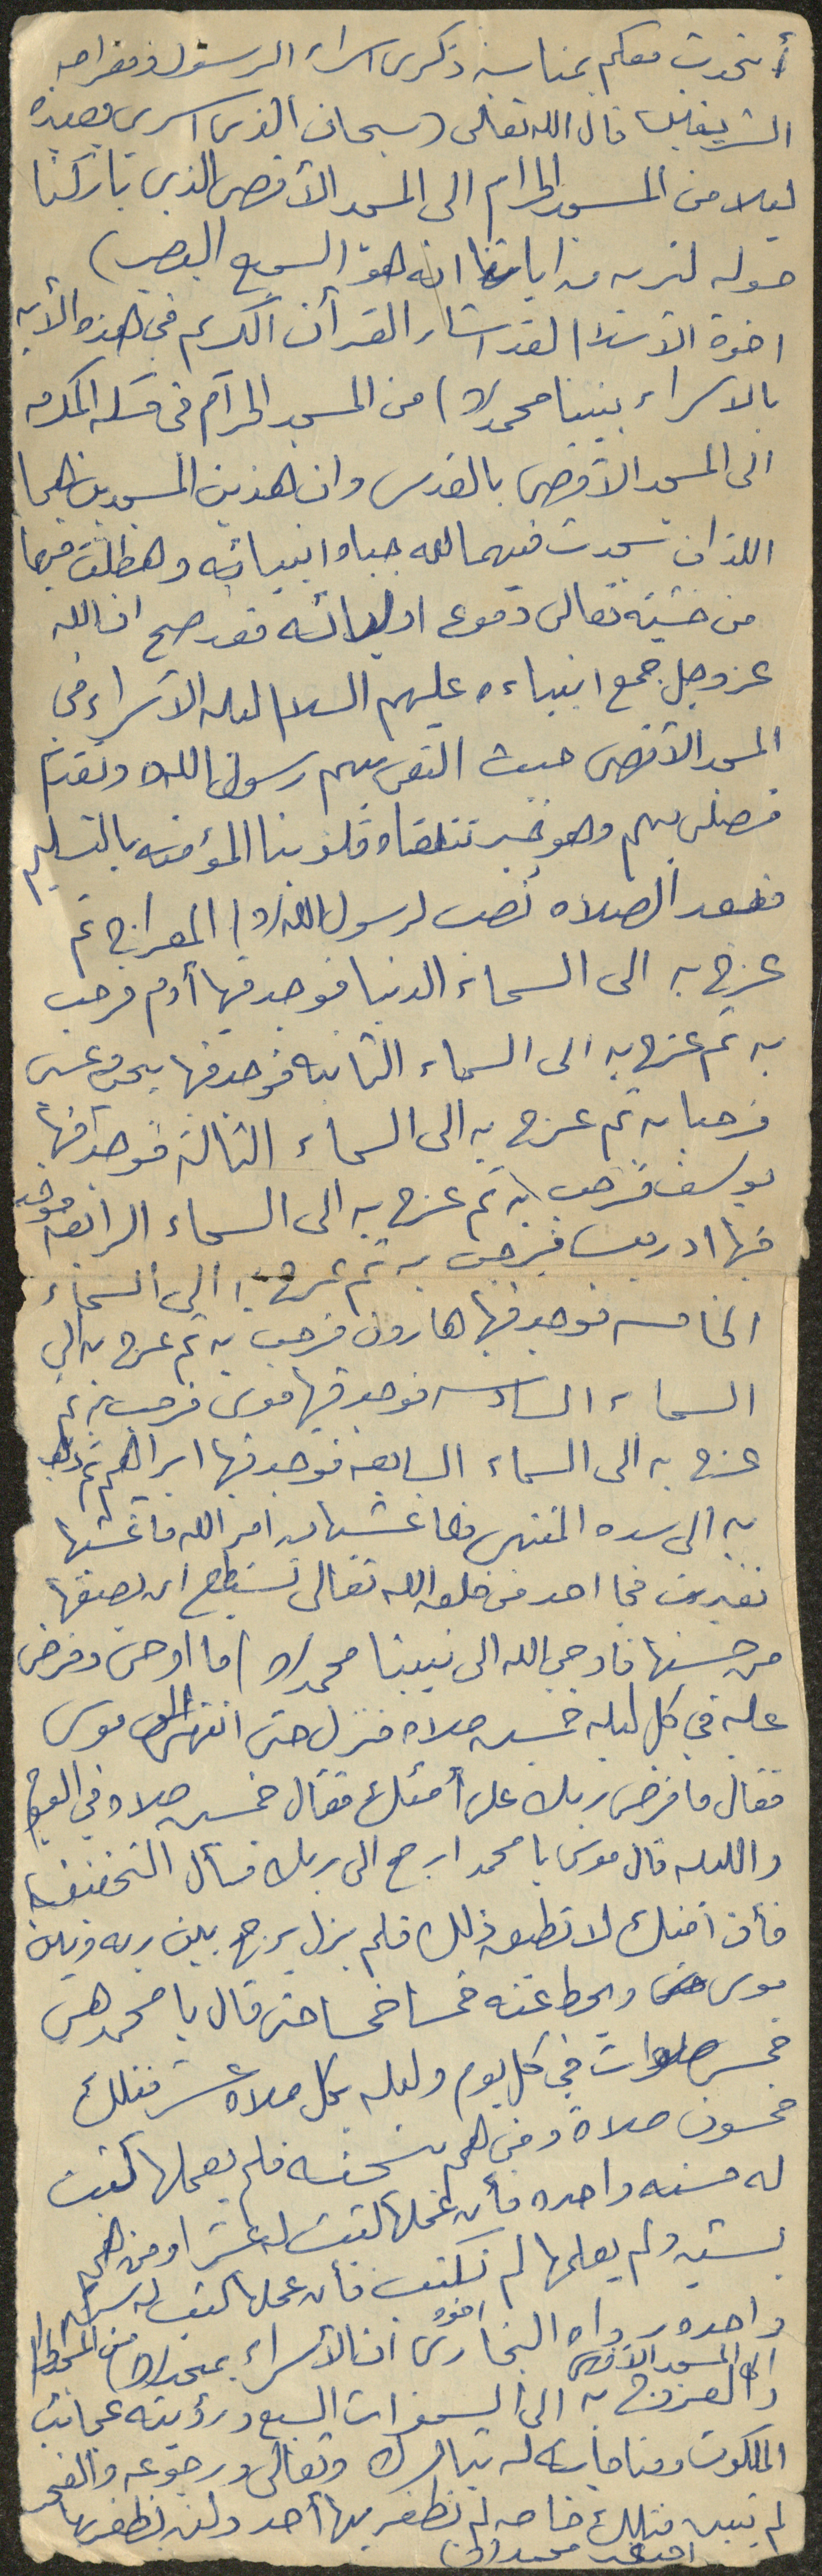 أتحدث معكم بمناسبة ذكرى اسراء الرسول ومعراجه
الشريفين قال الله تعالى (سبحان الذي اسرى بعبده
ليلا من المسجد الحرام الى المسجد الأقصى الذي باركنا
حوله لنريه من اياتنا انه هو السميع البصير)
اخوة الاسلام لقد اشار القرآن الكريم في هذه الأيه
بالاسراء بنبينا محمد (ص) من المسجد الحرام في مكه المكرمه
الى المسجد الأقصى بالقدس وان هذين المسجدين هما
اللذان سجدت فيهما لله جباه انبيائه وهطلت فيها
من خشيته تعالى دموع اوليائه فقد صح ان الله
عز وجل جمع انبياءه عليهم السلام ليله الأسراء في
المسجد الأقصى حيث التقى بهم رسول الله وتقدم
فصلى بهم وهو خبر تتلقاه قلوبنا المؤمنه بالتسليم
فبعد الصلاه نصب لرسول الله (ص) المعراج ثم
عرج به الى السماء الدنيا فوجد فيها أدم فرحب
به ثم عرج به الى السماء الثانيه فوجد فيها يحيى وعيسى
فرحبا به ثم عرج به الى السماء الثالثه فوجد فيها
يوسف فرحب به ثم عرج به الى السماء الرابعه فوجد
فيها ادريس فرحب به ثم عرج به الى السماء
الخامسه فوجد فيها هارون فرحب به ثم عرج به الى
السماء السادسه فوجد فيها موسى فرحب به ثم
عرج به الى السماء السابعه فوجد فيها ابراهيم ثم ذهب
به الى سدره المنتهى فلما غشيها من امر الله ما غشيها
تغيرت فما احد من خلق الله تعالى تستطيع ان يصفها
من حسنها فاوحى الله الى نبينا محمد (ص) ما اوحى وفرض
عليه في كل ليله خمسين صلاه فنزل حتى انتهى الى موسى
فقال ما فرض ربك على أمتك فقال خمسين صلاه في اليوم
والليله قال موسى يا محمد ارجع الى ربك فسأل التخفيف
فأن امتك لا تطيق ذلك فلم يزل يرجع بين ربه وبين
موسى ويحط عنه خمسا خمسا حتى قال يا محمد هي
خمس صلوات في كل يوم وليله بكل صلاه عشر فتلك
خمسون صلاة ومن هم بحسنه فلم يعملها كتبت
له حسنه واحده فأن عملها كتبت له عشرا ومن هم
بسيئه ولم يعلمها لم تكتب فأن عملها كتبت له سيئه
واحده رواه البخاري اخوه ان الأسراء بمحمد (ص) من المسجد الحرام
الى المسجد الأقصى
والعروج به الى السموات السبع ورؤيته عجائب
الملكوت ومناجاته له تبارك وتعالى ورجوعه والفجر
لم يتبين فتلك خاصه لم تظفر بها أحد ولن يظفر بها
احد غير محمد (ص)